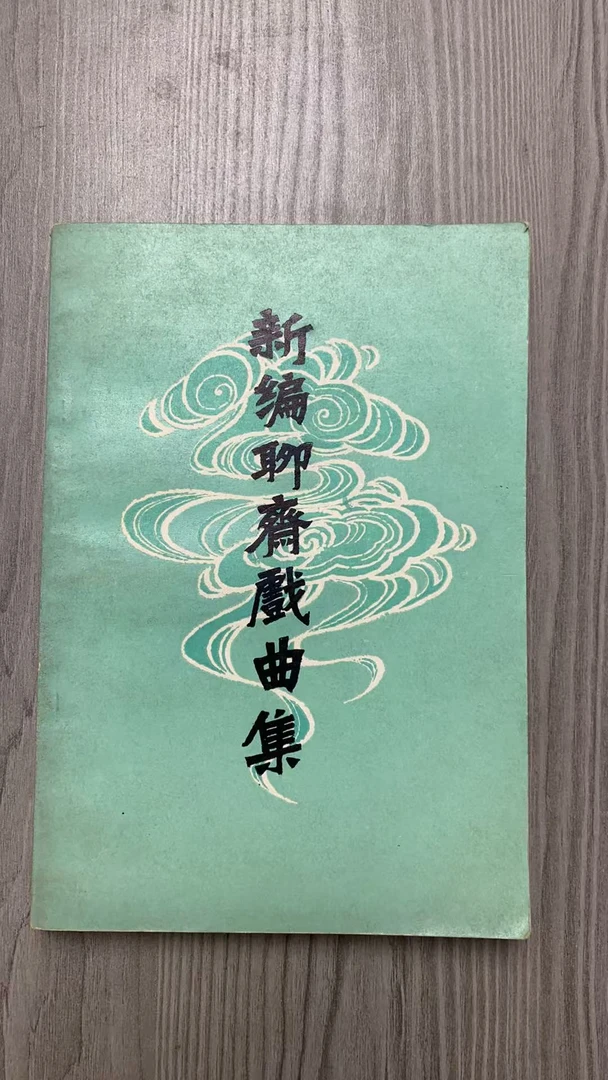 新编聊齋戲曲集